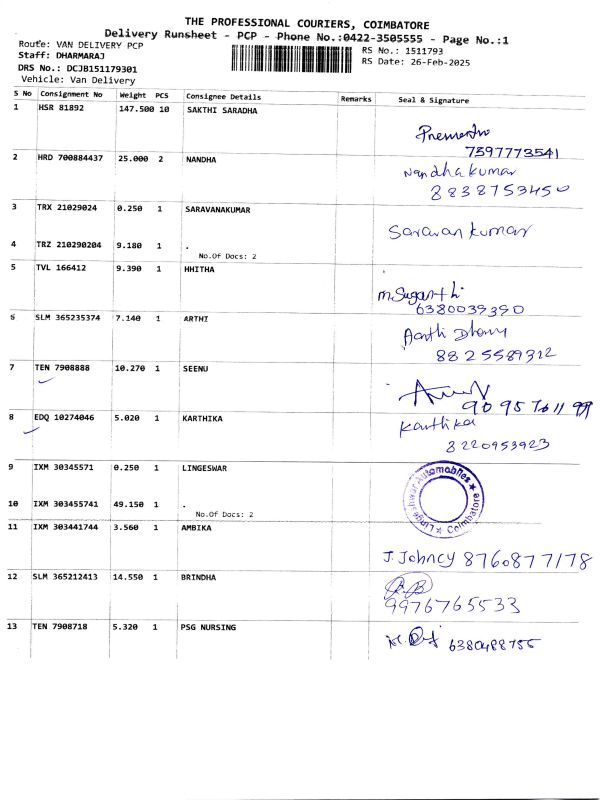 THE PROFESSIONAL COURIERS, COIMBATORE
Delivery Runsheet - PCP - Phone No.:0422-3505555 - Page No.:1
Route: VAN DELIVERY PCP
RS No.: 1511793
Staff: DHARMARAJ
RS Date: 26-Feb-2025
DRS No.: DCJB151179301
Vehicle: Van Delivery
S No Consignment No Weight PCS Consignee Details Remarks Seal & Signature
1 HSR 81892 147.500 10 SAKTHI SARADHA
7597773541
2 HRD 700884437 25.000 2 NANDHA
Nandhakumar
8838753450
3 TRX 21029024 0.250 1 SARAVANAKUMAR
Saravan kumar
4 TRZ 210290204 9.180 1 .
No.Of Docs: 2
5 TVL 166412 9.390 1 HHITHA
m.Suganthi
6380039390
6 SLM 365235374 7.140 1 ARTHI
8825589312
7 TEN 7908888 10.270 1 SEENU
8 EDQ 10274046 5.020 1 KARTHIKA
Karthika
8220953923
9 IXM 30345571 0.250 1 LINGESWAR
Lingeshwar Automobiles ★ Coimbatore ★
10 IXM 303455741 49.150 1 .
No.Of Docs: 2
11 IXM 303441744 3.560 1 AMBIKA
J. Johncy 8760877178
12 SLM 365212413 14.550 1 BRINDHA
9976765533
13 TEN 7908718 5.320 1 PSG NURSING
6380488755